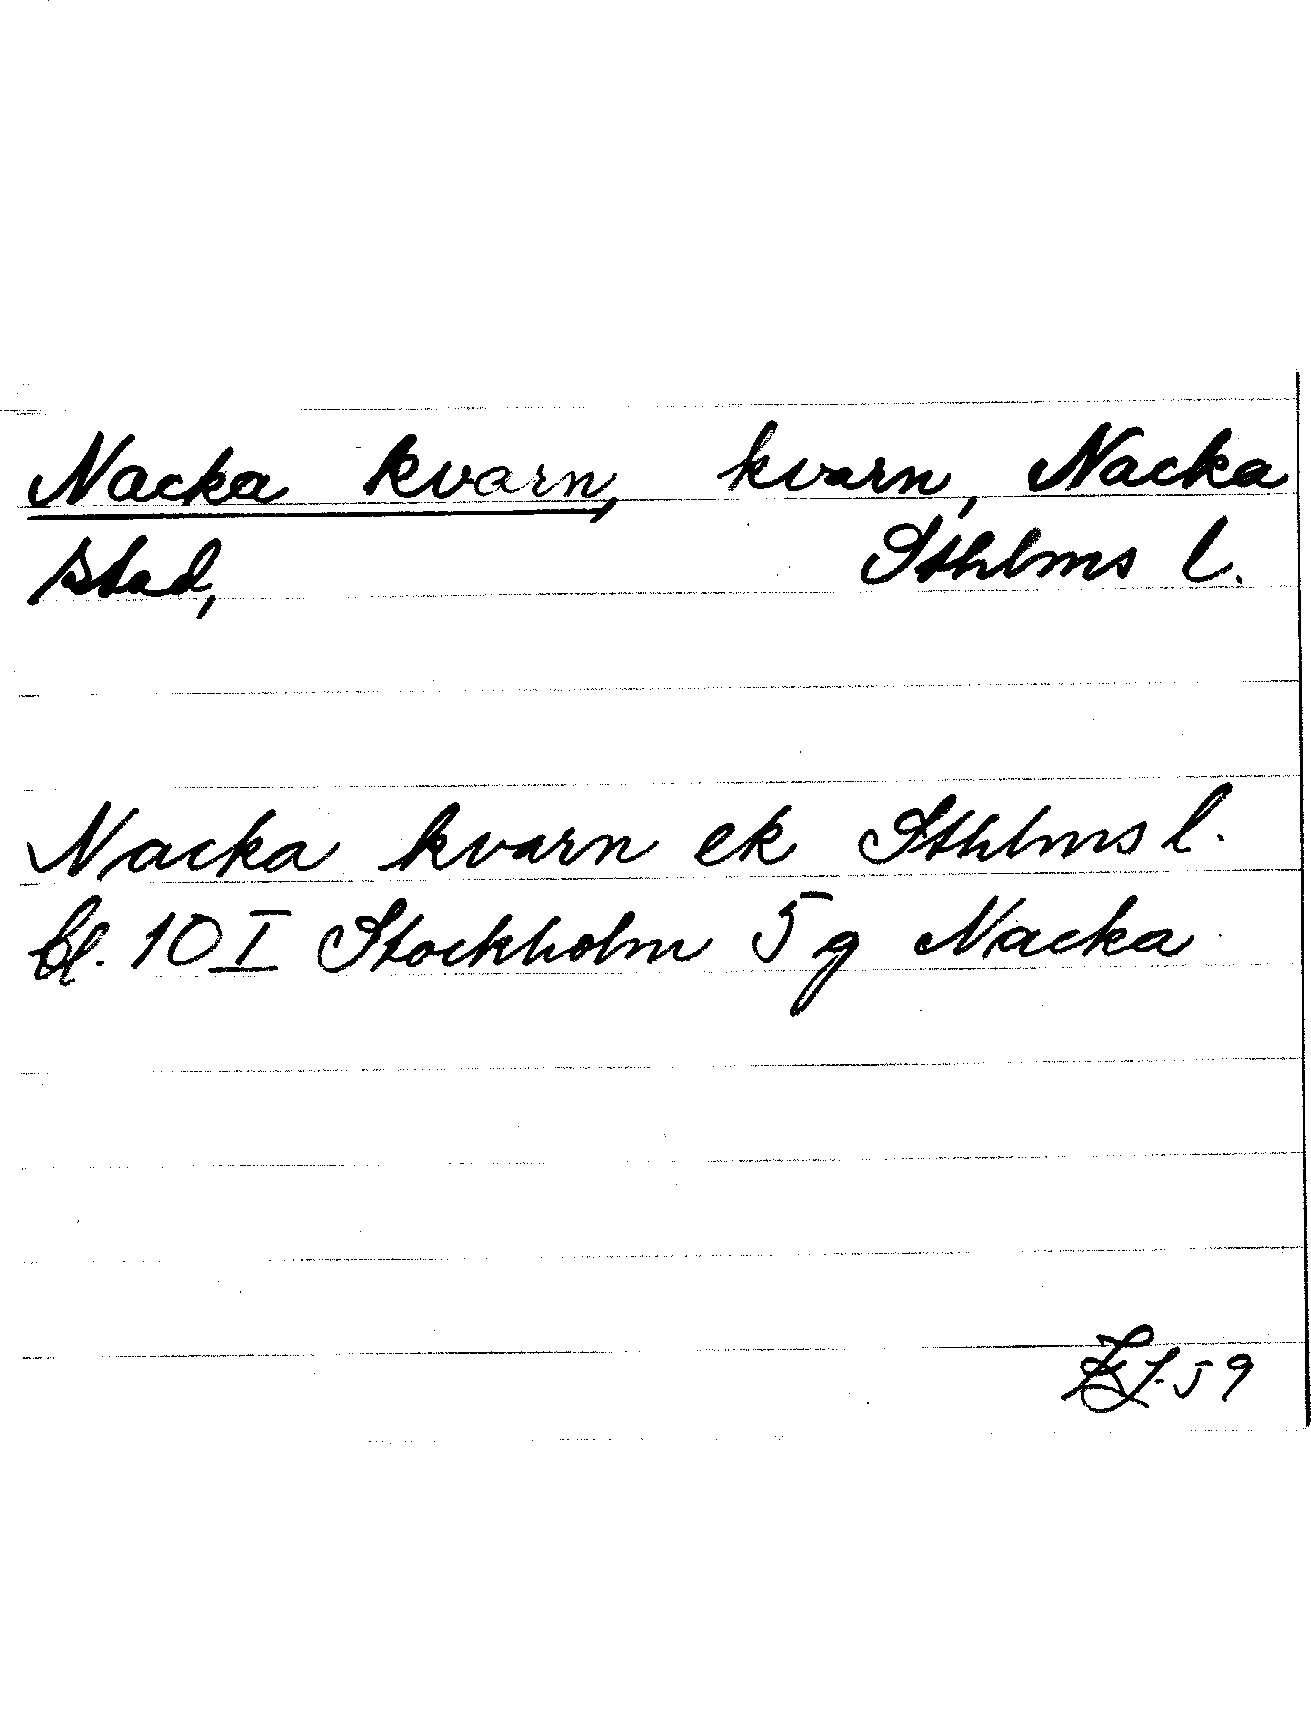 Nacka kvarn, kvarn, Nacka
stad, Sthlms l.
Nacka kvarn ek Sthlms l.
bl. 10 I Stockholm 5 g Nacka
-59